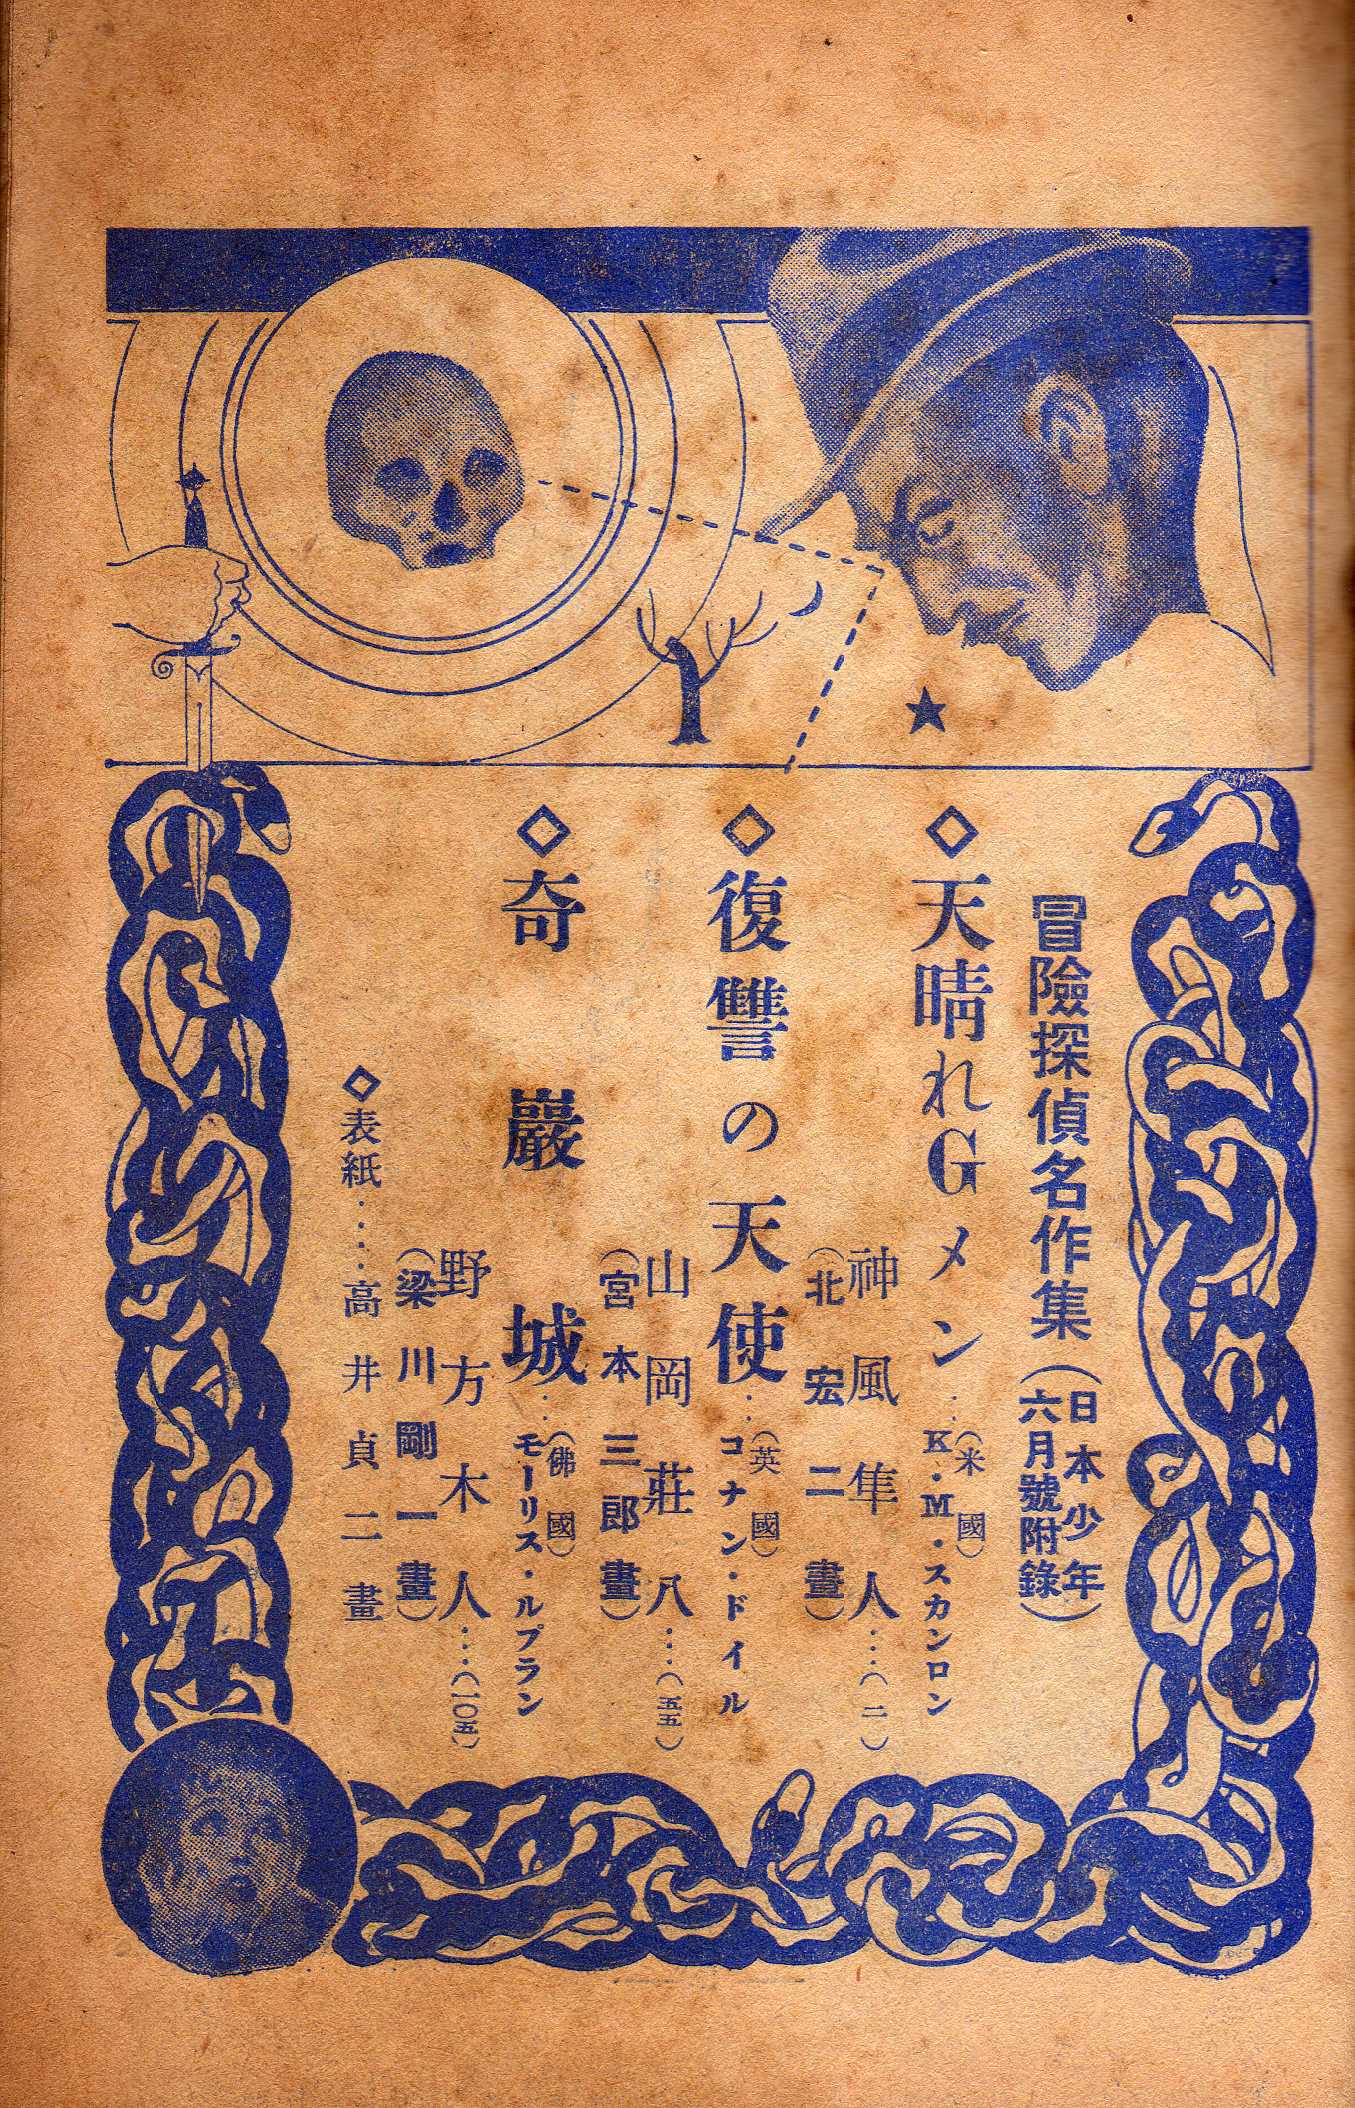 冒險探偵名作集（日本少年六月號附錄）
◇天晴れGメン‥（米國）K・M・スカンロン
神風隼人‥‥（二）
（北宏二畫）
◇復讐の天使‥（英國）コナン・ドイル
山岡莊八‥‥（五五）
（宮本三郎畫）
◇奇巖城‥（佛國）モーリス・ルプラン
野方木人‥‥（一〇五）
（梁川剛一畫）
◇表紙‥‥高井貞二畫